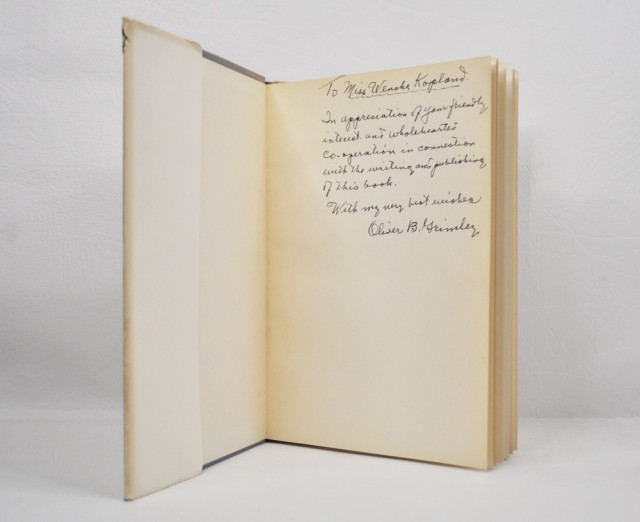 To Miss Wencke Kopland.
In appreciation of your friendly
interest and wholehearted
co-operation in connection
with the writing and publishing
of this book.
With my very best wishes
Oliver B. Grimley